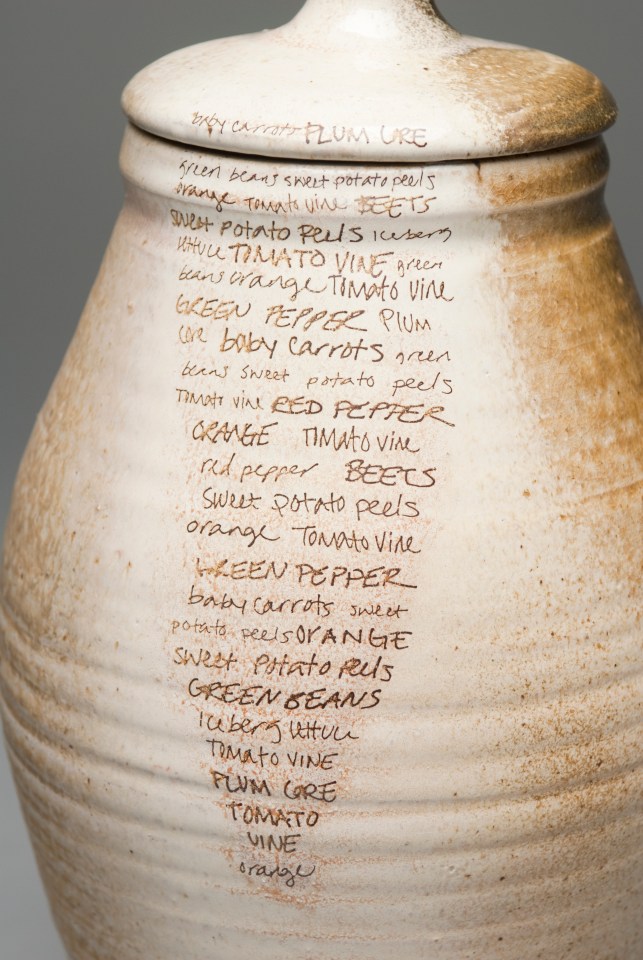 baby carrots PLUM CORE
green beans sweet potato peels
orange Tomato vine BEETS
sweet potato peels iceberg
lettuce TOMATO VINE green
beans orange Tomato vine
GREEN PEPPER PLUM
core baby carrots green
beans sweet potato peels
Tomato vine RED PEPPER
ORANGE Tomato vine
red pepper BEETS
sweet potato peels
orange Tomato vine
GREEN PEPPER
baby carrots sweet
potato peels ORANGE
sweet potato peels
GREEN BEANS
iceberg lettuce
Tomato VINE
PLUM CORE
TOMATO
VINE
orange